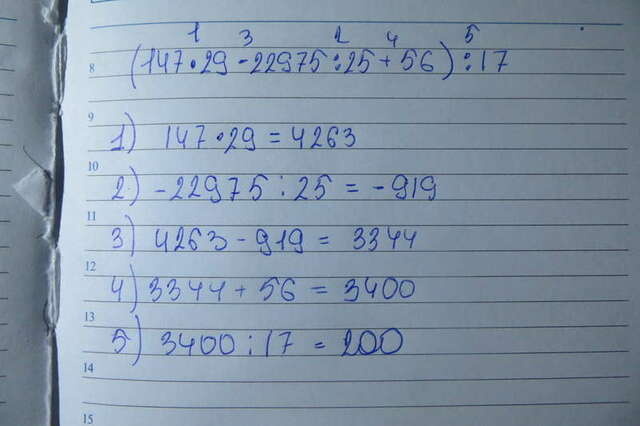 1 3 2 4 5
8 (147·29-22975:25+56):17
9
1) 147·29=4263
10
2) -22975:25=-919
11
3) 4263-919=3344
12
4) 3344+56=3400
13
5) 3400:17=200
14
15